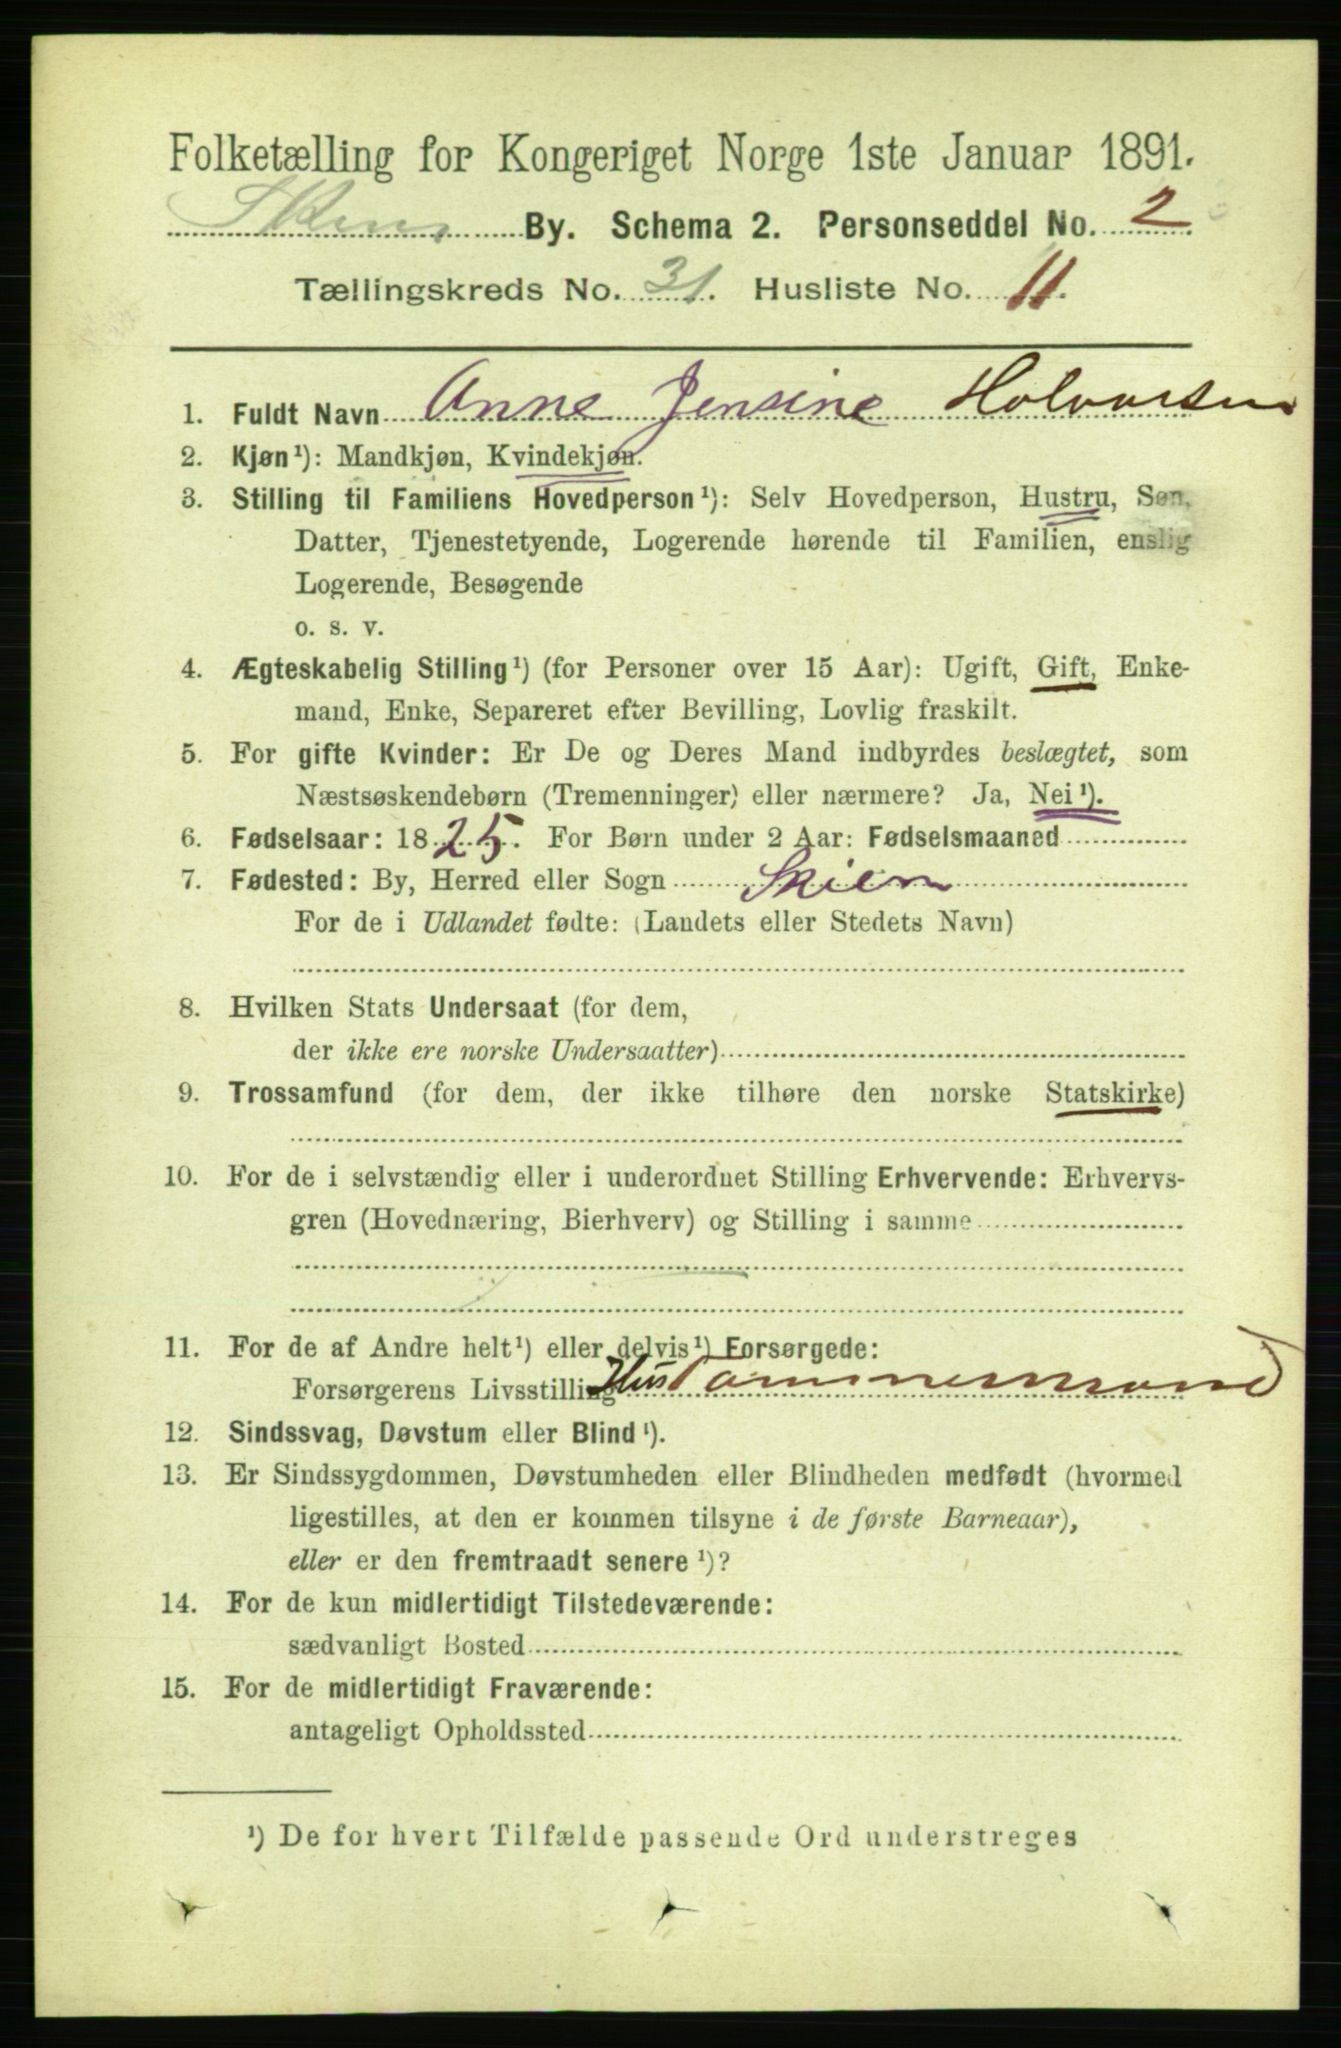 Folketælling for Kongeriget Norge 1ste Januar 1891.
Skien By. Schema 2. Personseddel No. 2
Tællingskreds No. 31. Husliste No. 11.
1. Fuldt Navn Anne Jensine Halvorsen
2. Kjøn¹): Mandkjøn, Kvindekjøn.
3. Stilling til Familiens Hovedperson¹): Selv Hovedperson, Hustru, Søn,
Datter, Tjenestetyende, Logerende hørende til Familien, enslig
Logerende, Besøgende
o. s. v.
4. Ægteskabelig Stilling¹) (for Personer over 15 Aar): Ugift, Gift, Enke-
mand, Enke, Separeret efter Bevilling, Lovlig fraskilt.
5. For gifte Kvinder: Er De og Deres Mand indbyrdes beslægtet, som
Næstsøskendebørn (Tremenninger) eller nærmere? Ja, Nei¹).
6. Fødselsaar: 1825. For Børn under 2 Aar: Fødselsmaaned
7. Fødested: By, Herred eller Sogn Skien
For de i Udlandet fødte: (Landets eller Stedets Navn)
8. Hvilken Stats Undersaat (for dem,
der ikke ere norske Undersaatter)
9. Trossamfund (for dem, der ikke tilhøre den norske Statskirke)
10. For de i selvstændig eller i underordnet Stilling Erhvervende: Erhvervs-
gren (Hovednæring, Bierhverv) og Stilling i samme
11. For de af Andre helt¹) eller delvis¹) Forsørgede:
Forsørgerens Livsstilling Hustømmermand
12. Sindssvag, Døvstum eller Blind¹).
13. Er Sindssygdommen, Døvstumheden eller Blindheden medfødt (hvormed
ligestilles, at den er kommen tilsyne i de første Barneaar),
eller er den fremtraadt senere¹)?
14. For de kun midlertidigt Tilstedeværende:
sædvanligt Bosted
15. For de midlertidigt Fraværende:
antageligt Opholdssted
¹) De for hvert Tilfælde passende Ord understreges